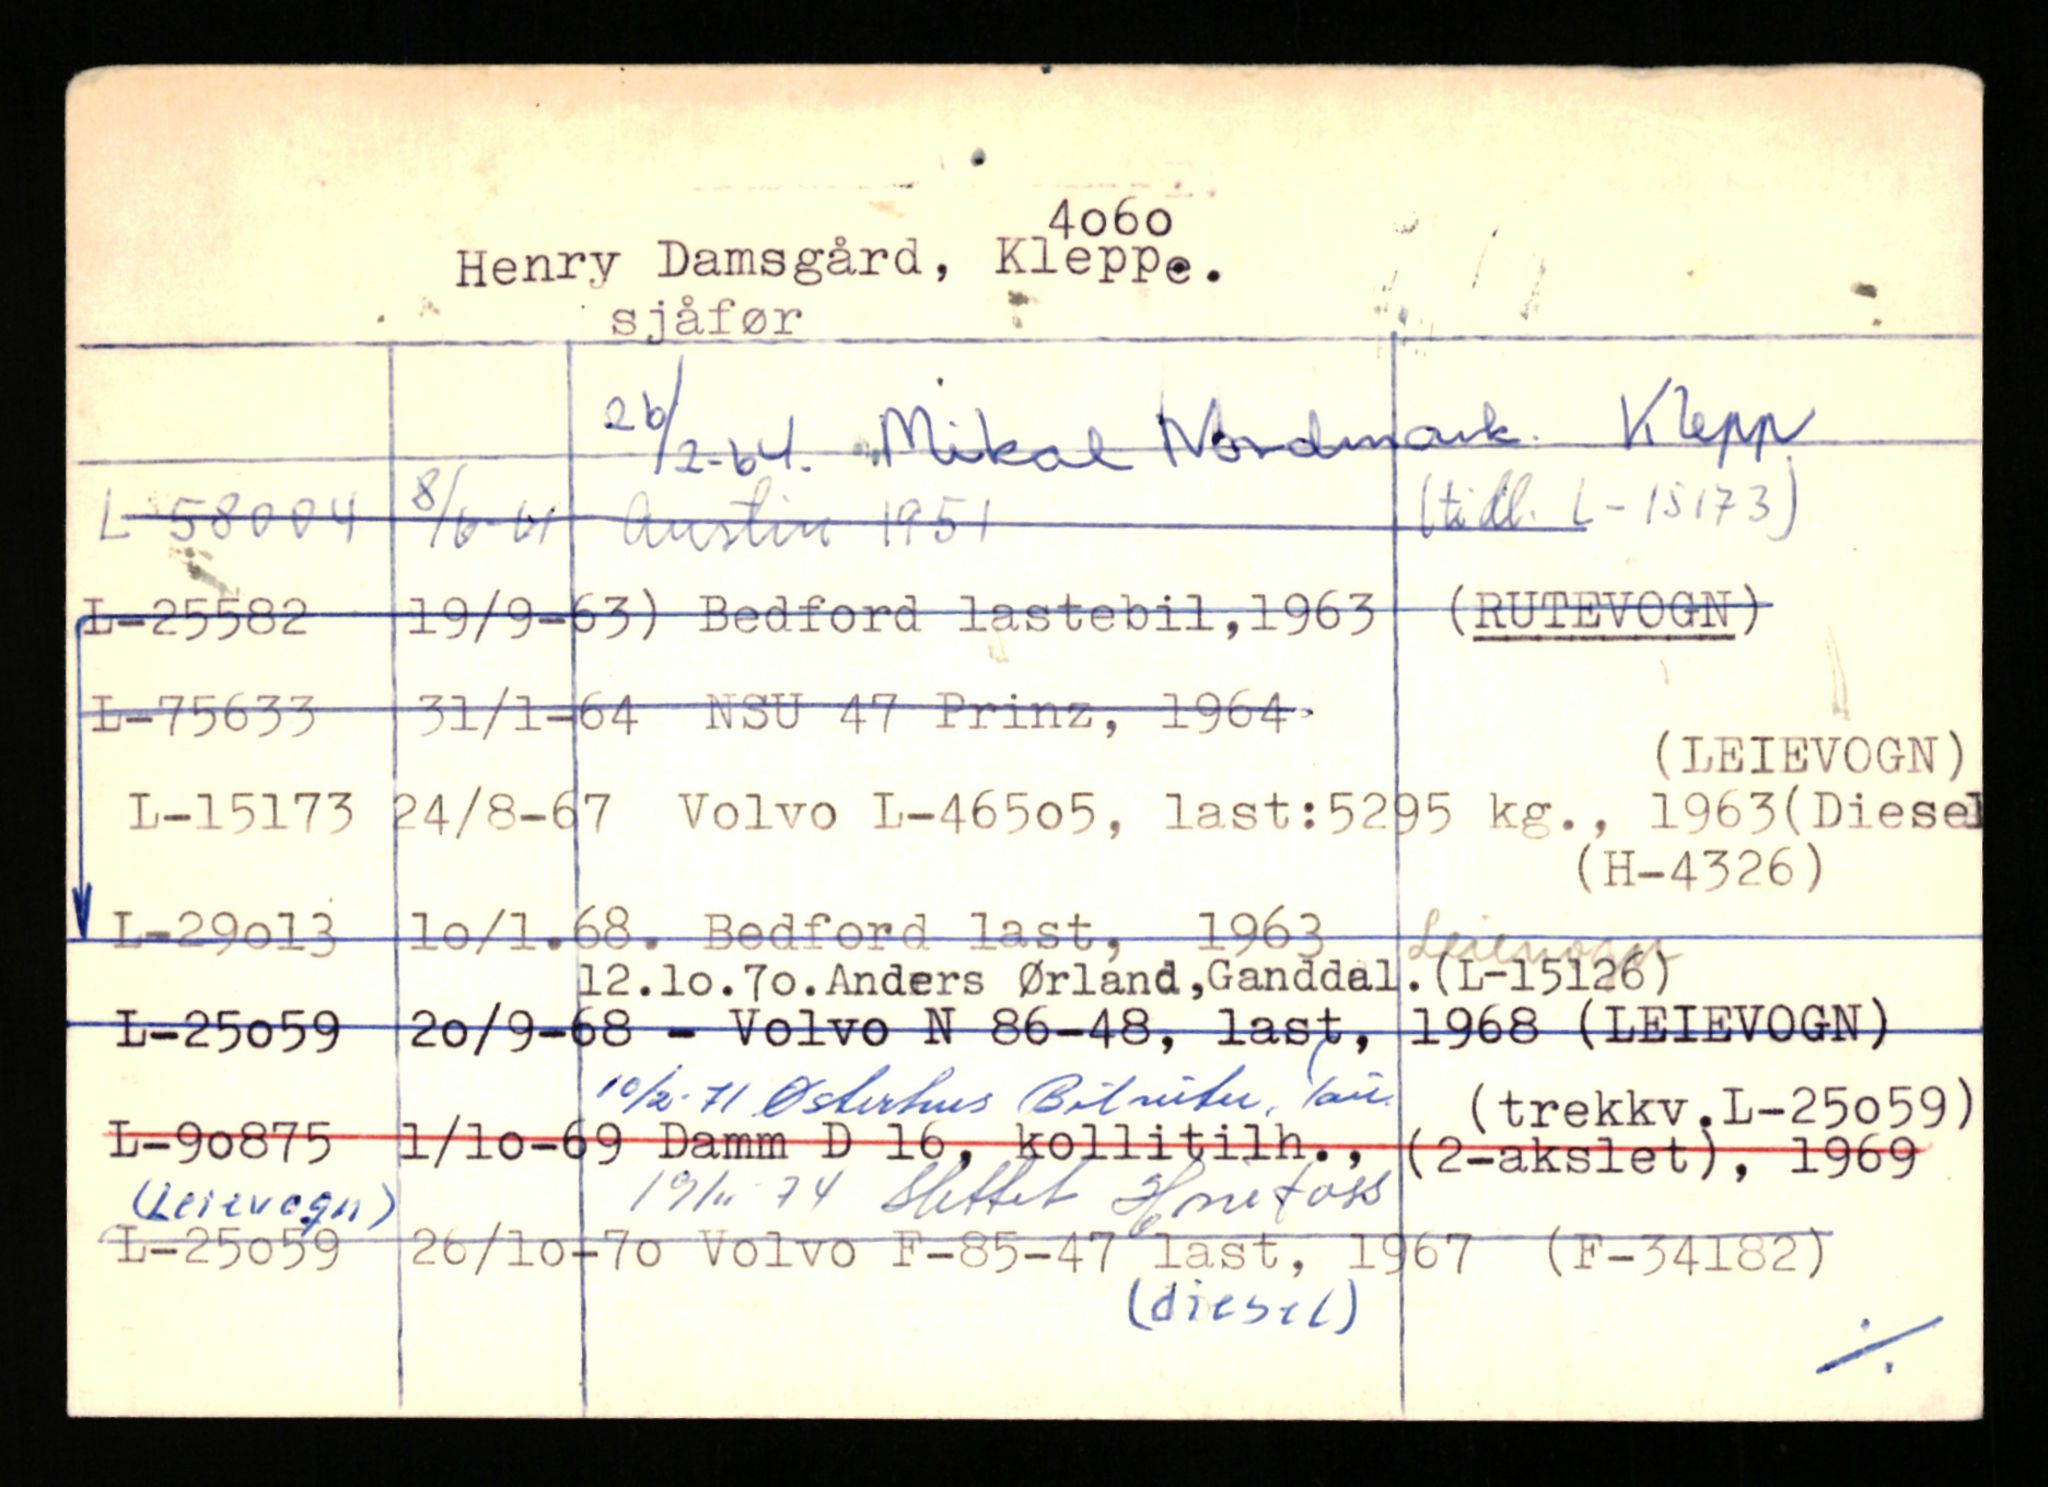 4o6o
Henry Damsgård, Kleppe.
sjåfør
26/2-64. Mikal Nordmark. Klepp
L-58004 8/6-61 Austin 1951 (tidl. L-15173)
L-25582 19/9-63) Bedford lastebil,1963 (RUTEVOGN)
L-75633 31/1-64 NSU 47 Prinz, 1964.
(LEIEVOGN)
L-15173 24/8-67 Volvo L-465o5, last:5295 kg., 1963(Diesel
(H-4326)
L-29o13 1o/1.68. Bedford last, 1963 Leievogn
12.1o.7o.Anders Ørland,Ganddal.(L-15126)
L-25o59 2o/9-68 - Volvo N 86-48, last, 1968 (LEIEVOGN)
10/2-71 Østerhus Bilruter, Tau.
(trekkv.L-25o59)
L-9o875 1/1o-69 Damm D 16, kollitilh., (2-akslet), 1969
(Leievogn) 19/11-74 Slettet
L-25o59 26/1o-7o Volvo F-85-47 last, 1967 (F-34182)
(diesel)